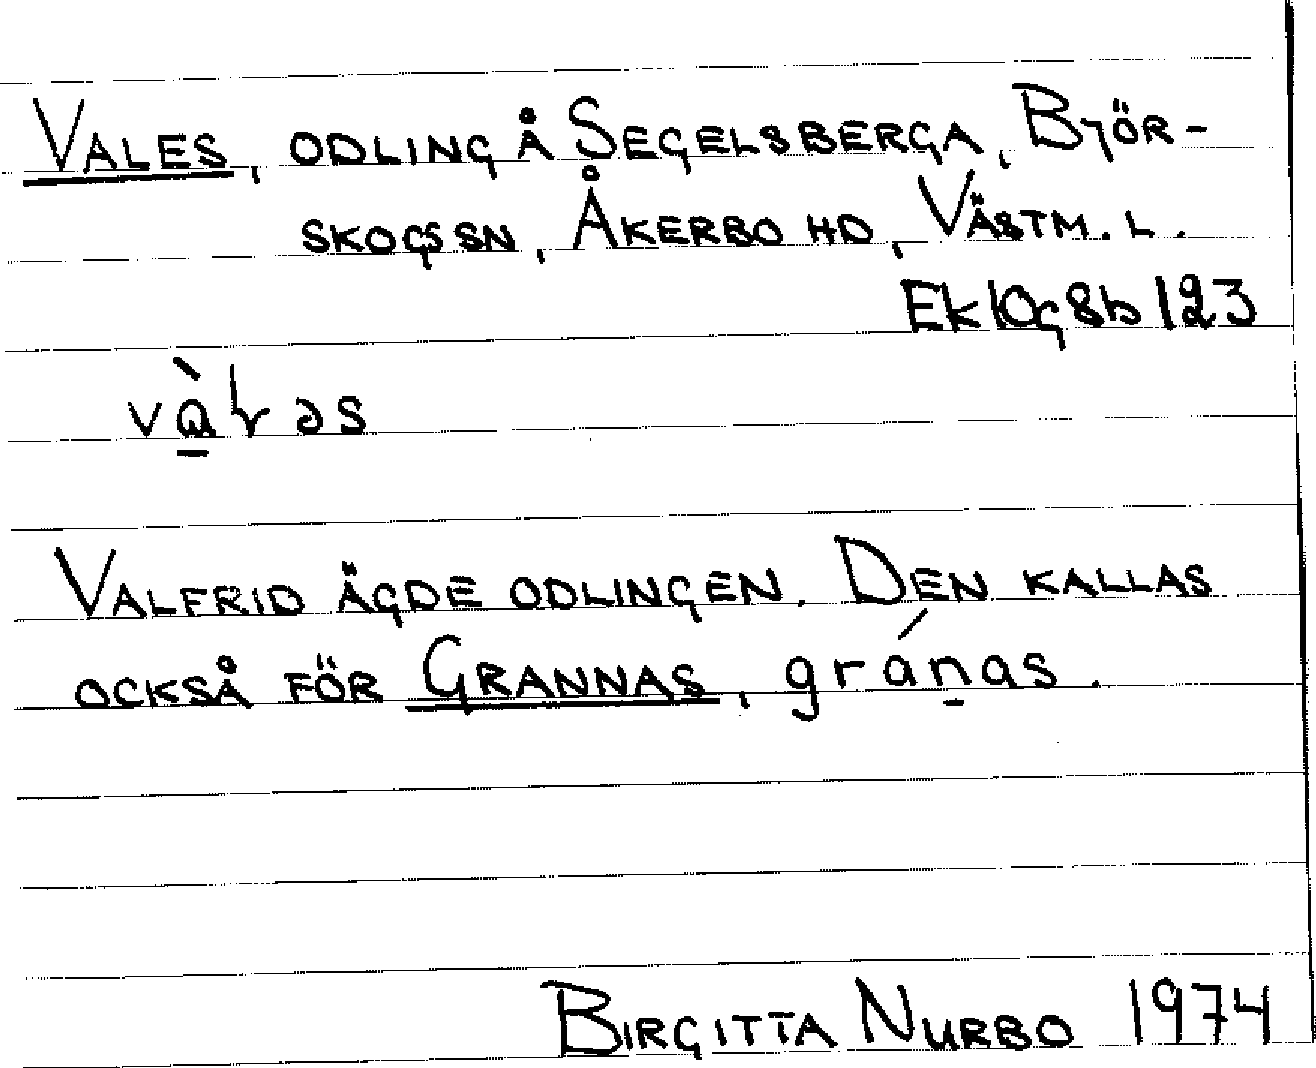 Vales, odling å Segelsberga, Björ-
skogs sn, Åkerbo hd, Västm. l.
Ek 10g 8b 123
và̱ƚəs
Valfrid ägde odlingen. Den kallas
också för Grannas, gráṉas.
Birgitta Nurbo 1974